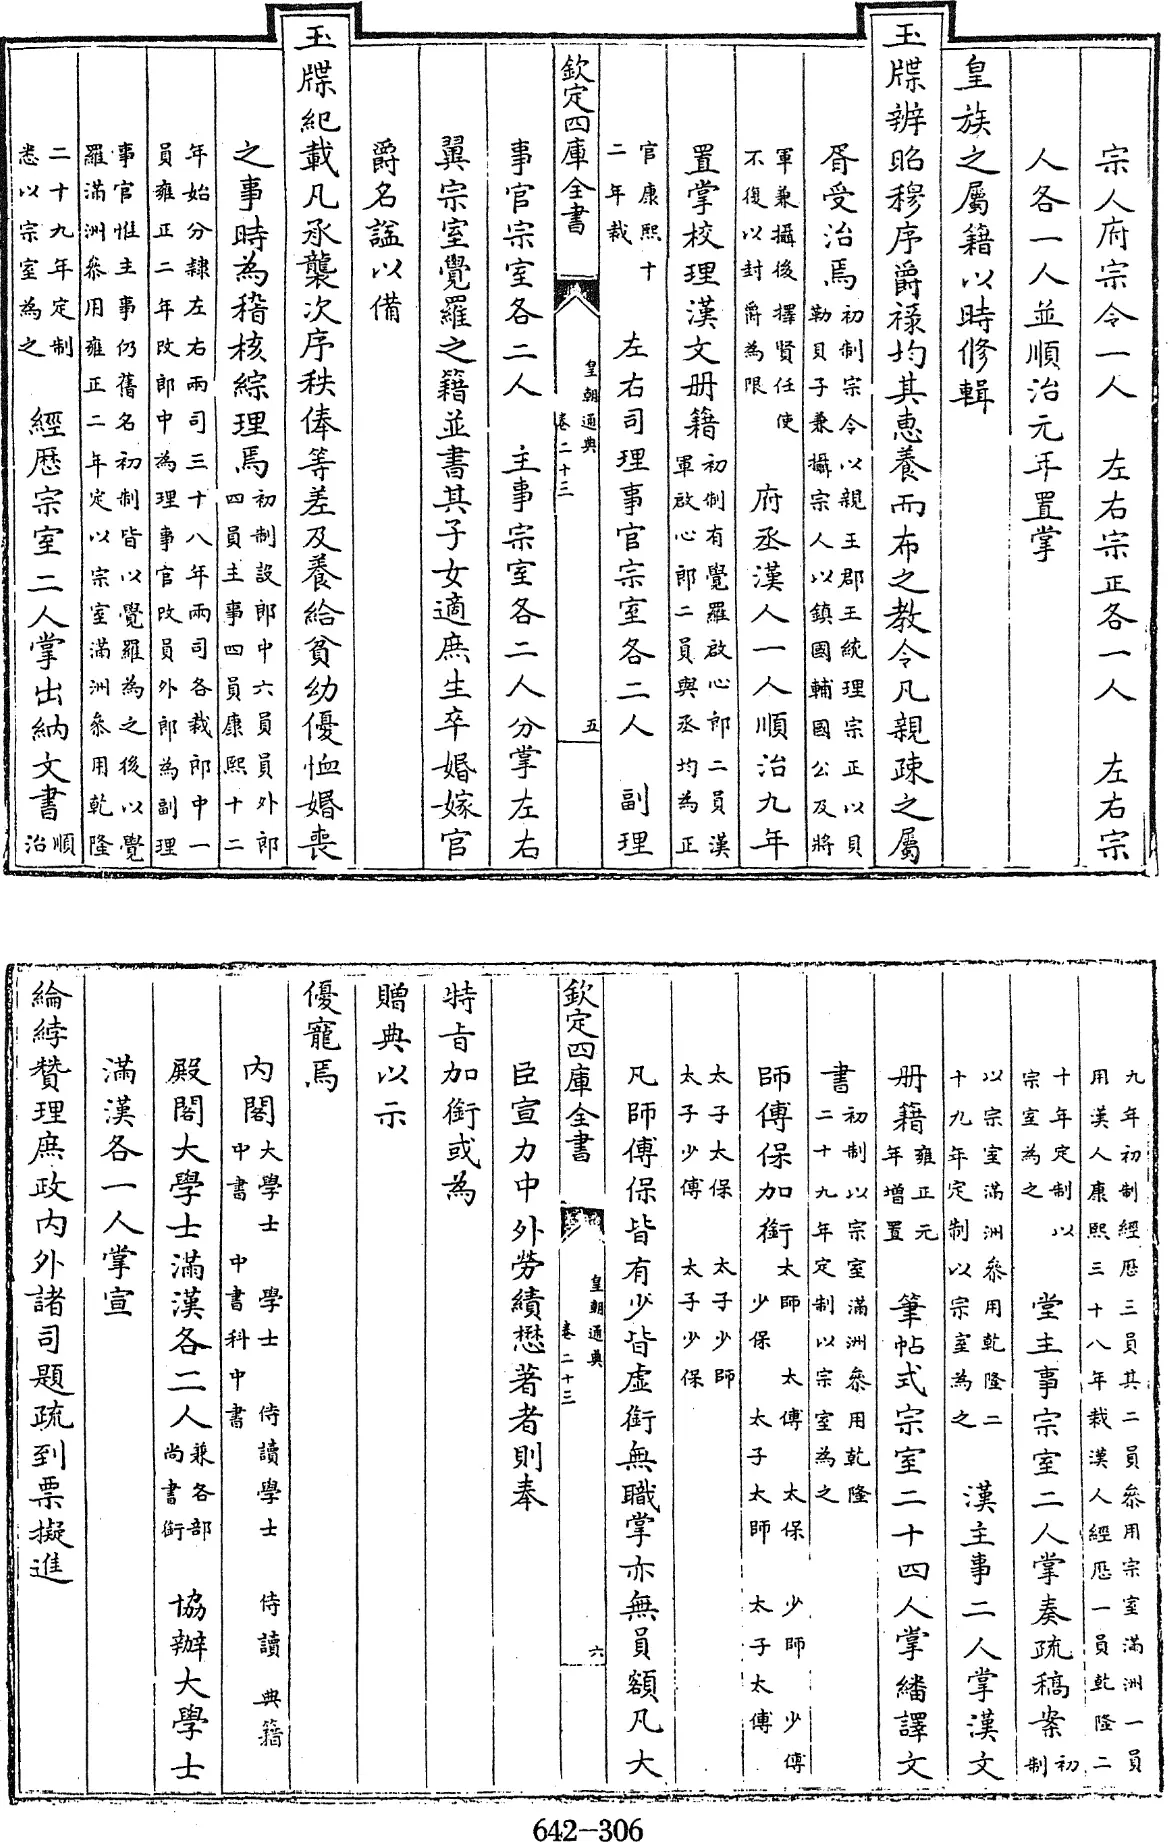 宗人府宗令一人　左右宗正各一人　左右宗
人各一人並順治元年置掌
皇族之屬籍以時修輯
玉牒辨昭穆序爵祿均其惠養而布之教令凡親疎之屬
胥受治焉初制宗令以親王郡王統理宗正以貝
勒貝子兼攝宗人以鎮國輔國公及將
軍兼攝後擇賢任使
不復以封爵為限　府丞漢人一人順治九年
置掌校理漢文册籍初制有覺羅啟心郎二員漢
軍啟心郎二員與丞均為正
官康熙十
二年裁　左右司理事官宗室各二人　副理
欽定四庫全書　皇朝通典
卷二十三　五
事官宗室各二人　主事宗室各二人分掌左右
翼宗室覺羅之籍並書其子女適庶生卒婚嫁官
爵名謚以備
玉牒紀載凡承襲次序秩俸等差及養給貧幼優恤婚喪
之事時為稽核綜理焉初制設郎中六員員外郎
四員主事四員康熙十二
年始分隸左右兩司三十八年兩司各裁郎中一
員雍正二年改郎中為理事官改員外郎為副理
事官惟主事仍舊名初制皆以覺羅為之後以覺
羅滿洲叅用雍正二年定以宗室滿洲叅用乾隆
二十九年定制
悉以宗室為之　經歷宗室二人掌出納文書順
治
九年初制經歷三員其二員叅用宗室滿洲一員
用漢人康熙三十八年裁漢人經歷一員乾隆二
十年定制以
宗室為之　堂主事宗室二人掌奏疏稿案初
制
以宗室滿洲叅用乾隆二
十九年定制以宗室為之　漢主事二人掌漢文
册籍雍正元
年增置　筆帖式宗室二十四人掌繙譯文
書初制以宗室滿洲叅用乾隆
二十九年定制以宗室為之
師傅保加銜太師　太傅　太保　少師　少傅
少保　太子太師　太子太傅
太子太保　太子少師
太子少傅　太子少保
凡師傅保皆有少皆虛銜無職掌亦無員額凡大
欽定四庫全書　皇朝通典
卷二十三　六
臣宣力中外勞績懋著者則奉
特旨加銜或為
贈典以示
優寵焉
內閣大學士　學士　侍讀學士　侍讀　典籍
中書　中書科中書
殿閣大學士滿漢各二人兼各部
尚書銜　協辦大學士
滿漢各一人掌宣
綸綍贊理庶政內外諸司題疏到票擬進
642-306